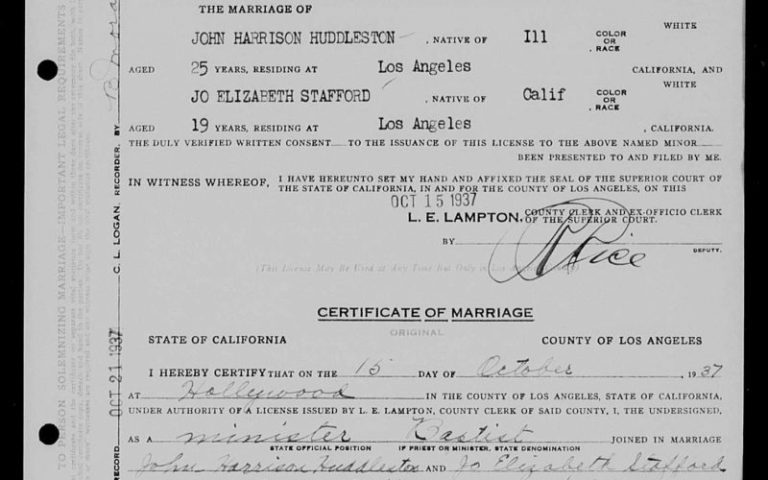 THE MARRIAGE OF
WHITE
JOHN HARRISON HUDDLESTON , NATIVE OF Ill COLOR OR RACE
AGED 25 YEARS, RESIDING AT Los Angeles CALIFORNIA, AND
WHITE
JO ELIZABETH STAFFORD , NATIVE OF Calif COLOR OR RACE
AGED 19 YEARS, RESIDING AT Los Angeles , CALIFORNIA.
THE DULY VERIFIED WRITTEN CONSENT TO THE ISSUANCE OF THIS LICENSE TO THE ABOVE NAMED MINOR
BEEN PRESENTED TO AND FILED BY ME.
IN WITNESS WHEREOF, I HAVE HEREUNTO SET MY HAND AND AFFIXED THE SEAL OF THE SUPERIOR COURT OF
THE STATE OF CALIFORNIA, IN AND FOR THE COUNTY OF LOS ANGELES, ON THIS
OCT 15 1937
L. E. LAMPTON, COUNTY CLERK AND EX-OFFICIO CLERK
OF THE SUPERIOR COURT.
BY Price
DEPUTY.
(This License May Be Used at Any Time But Only in Los Angeles County)
CERTIFICATE OF MARRIAGE
ORIGINAL
STATE OF CALIFORNIA COUNTY OF LOS ANGELES
I HEREBY CERTIFY THAT ON THE 15 DAY OF October , 1937
AT Hollywood IN THE COUNTY OF LOS ANGELES, STATE OF CALIFORNIA,
UNDER AUTHORITY OF A LICENSE ISSUED BY L. E. LAMPTON, COUNTY CLERK OF SAID COUNTY, I, THE UNDERSIGNED,
AS A minister Baptist JOINED IN MARRIAGE
STATE OFFICIAL POSITION IF PRIEST OR MINISTER, STATE DENOMINATION
John Harrison Huddleston AND Jo Elizabeth Stafford
C. L. LOGAN, RECORDER, BY
OCT 21 1937
RECORD
TO PERSON SOLEMNIZING MARRIAGE—IMPORTANT LEGAL REQUIREMENTS